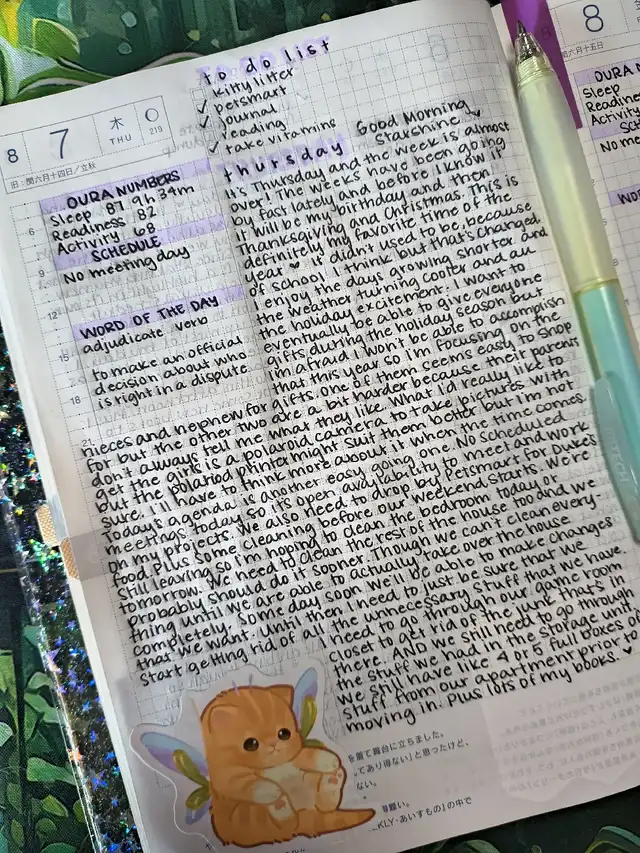 to do list
kitty litter
✓ petsmart
✓ journal
✓ reading
✓ take vitamins
8 7 木 THU 219
旧:閏六月十四日/立秋
OURA NUMBERS
Sleep 87 9h 34m
Readiness 82
Activity 68
SCHEDULE
No meeting day
WORD OF THE DAY
adjudicate verb
to make an official
decision about who
is right in a dispute
6
9
12
15
18
21
Good Morning
Starshine
thursday
It's Thursday and the week is almost
over! The weeks have been going
by fast lately and before I know it
it will be my birthday and then
Thanksgiving and Christmas. This is
definitely my favorite time of the
year It didn't used to be, because
of school I think but that's changed.
I enjoy the days growing shorter and
the weather turning cooler and all
the holiday excitement. I want to
eventually be able to give everyone
gifts during the holiday season but
I'm afraid I won't be able to accomplish
that this year so I'm focusing on the
nieces and nephew for gifts. One of them seems easy to shop
for but the other two are a bit harder because their parents
don't always tell me what they like. What I'd really like to
get the girls is a polaroid camera to take pictures with
but the Polariod printer might suit them better but I'm not
sure. I'll have to think more about it when the time comes.
Today's agenda is another easy going one. No scheduled
meetings today so it's open availability to meet and work
on my projects. We also need to drop by Petsmart for Duke's
food. Plus some cleaning before our weekend starts. We're
still leaving so I'm hoping to clean the bedroom today or
tomorrow. We need to clean the rest of the house too and we
probably should do it sooner. Though we can't clean every-
thing until we are able to actually take over the house
completely. Some day soon we'll be able to make changes
that we want. Until then I need to just be sure that we
start getting rid of all the unnecessary stuff that we have.
need to go through our game room
closet to get rid of the junk that's in
there. AND we still need to go through
the stuff we had in the storage unit.
We still have like 4 or 5 full boxes of
stuff from our apartment prior to
moving in. Plus lots of my books. ♥
を着て舞台に立ちました。
てあり得ない」と思ったけど、
ない。
KLY・あいすもの」の中で
8
OURA N
Sleep
Readines
Activity
SCH
No me
WO